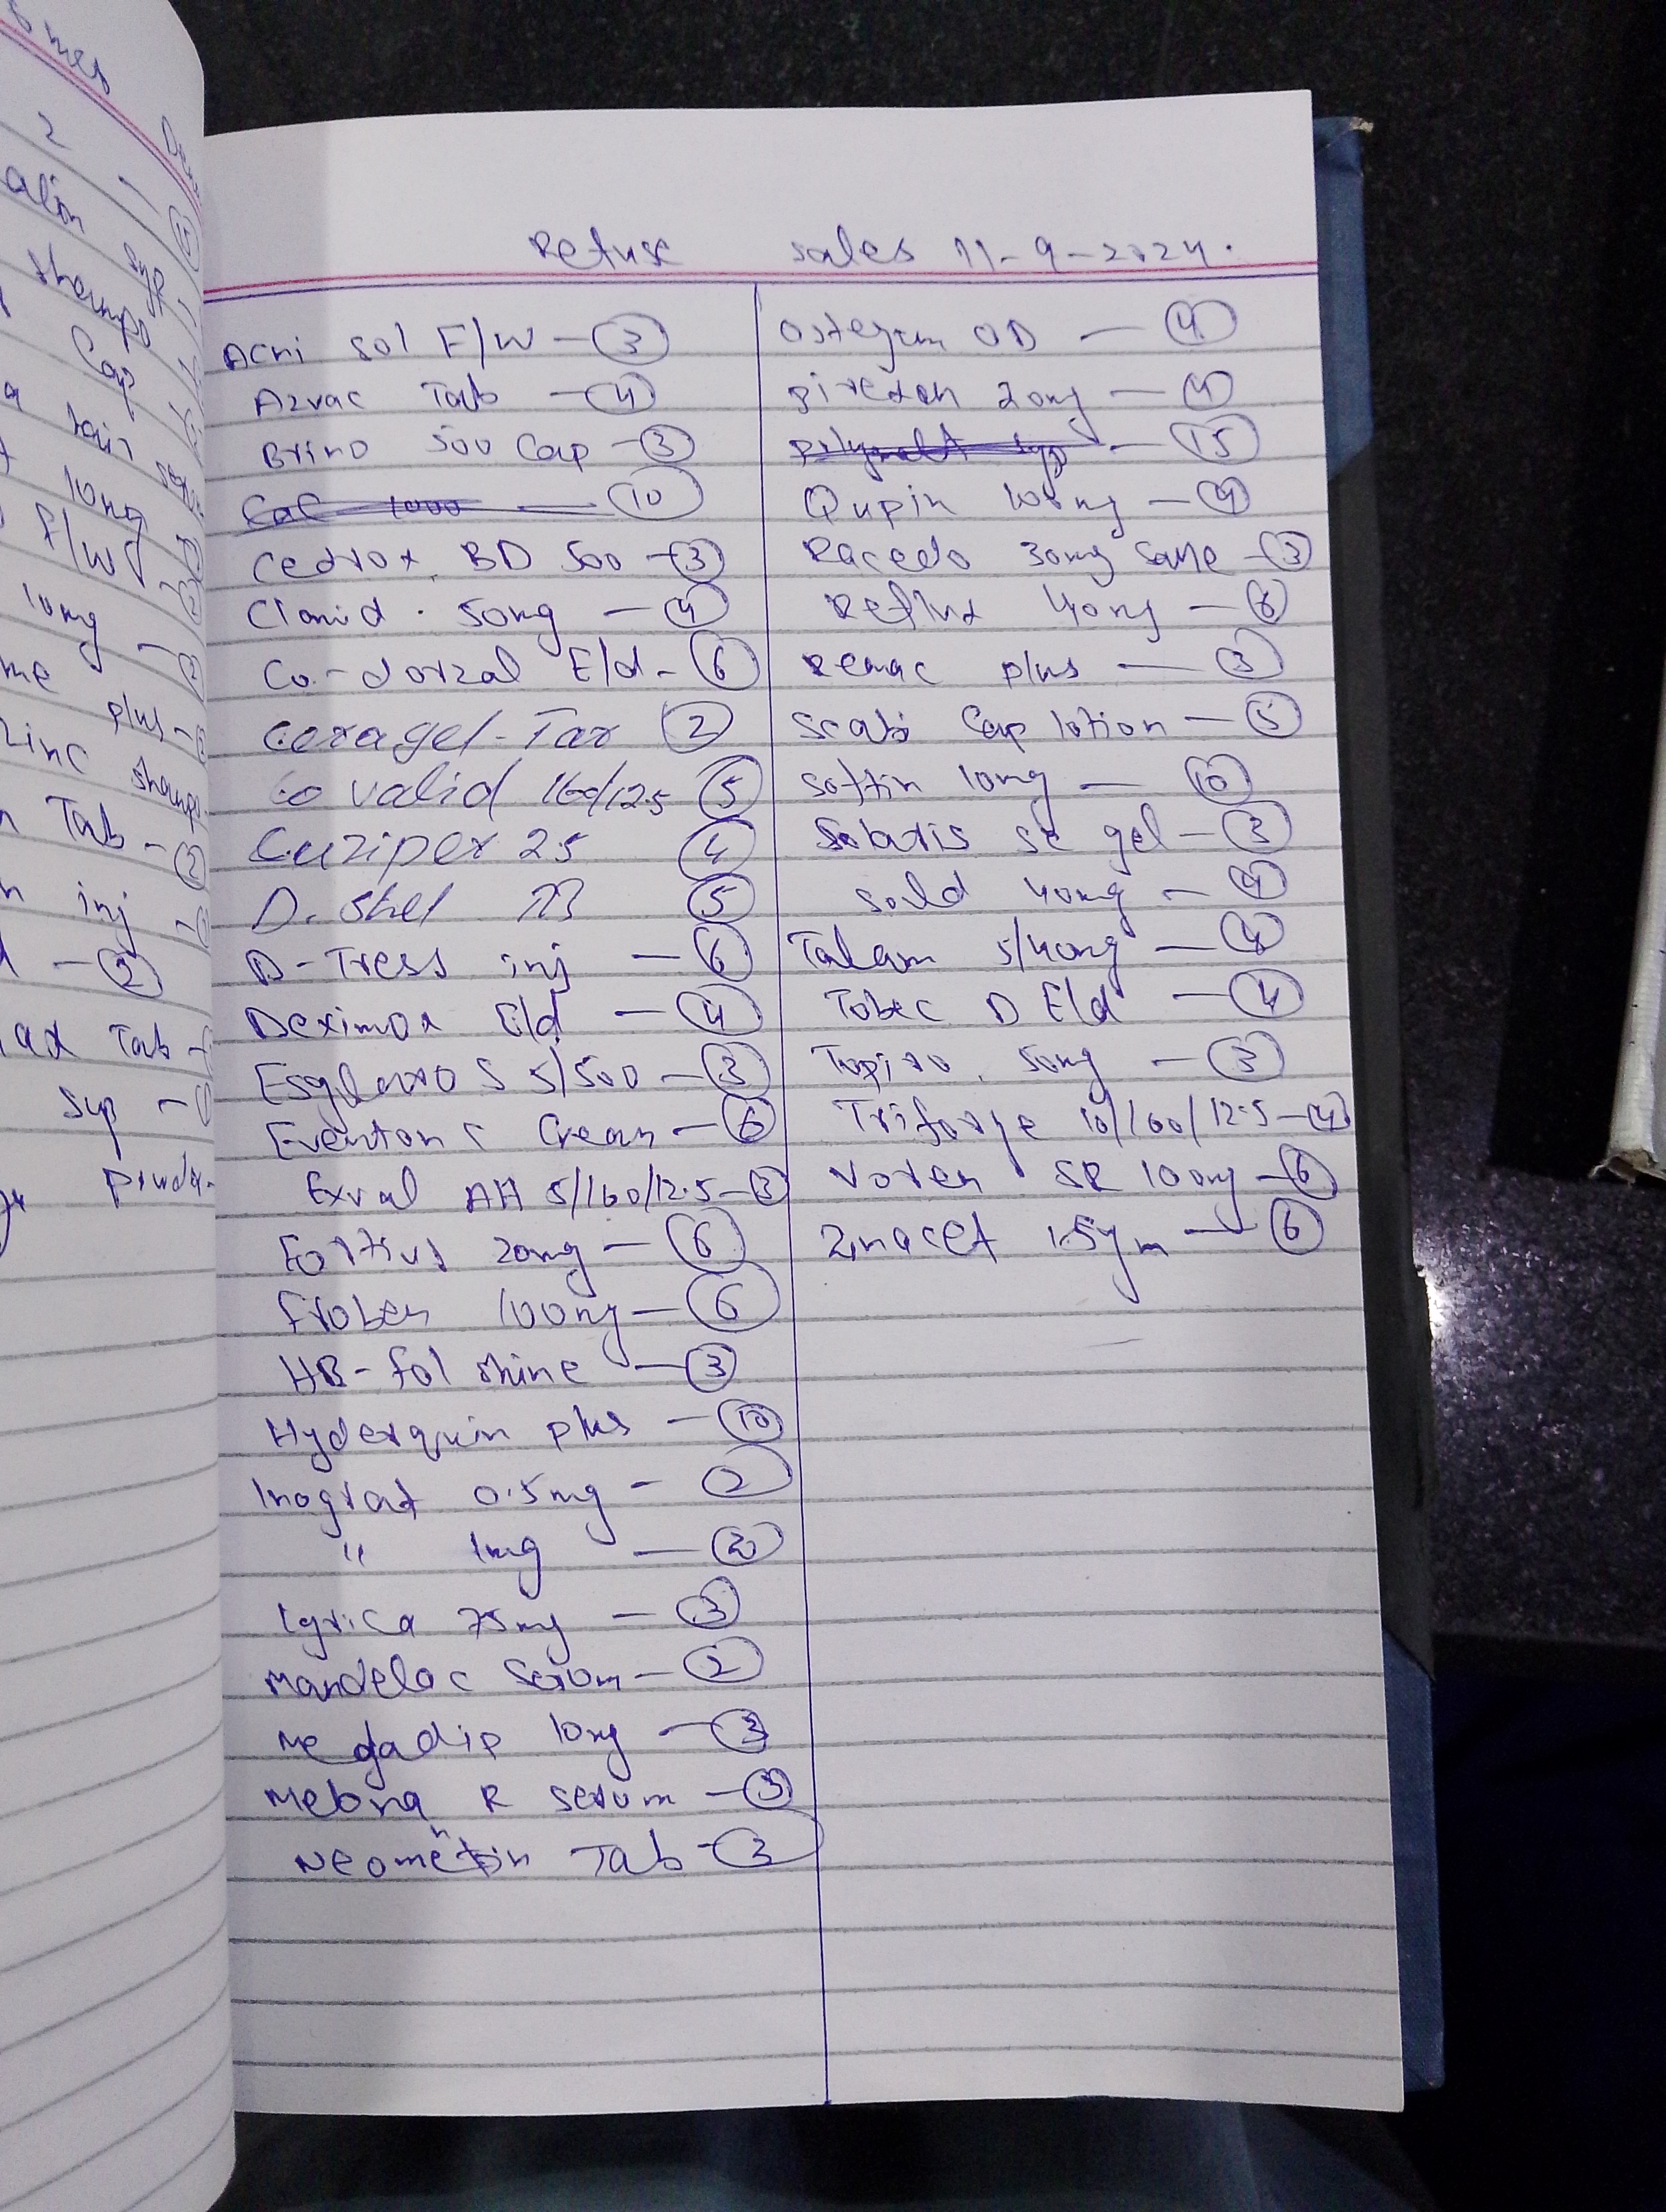 Refuse sales 11-9-2024.
Acni sol F/W - 3
Azvac Tab - 4
Brino 500 Cap - 3
CaC 1000 - 10
Cedrox BD 500 - 3
Clonid. 50mg - 4
Co-dorzal E/d - 6
Coragel-Tar 2
Co valid 160/12.5 5
Cuziper 25 4
D. shel 5
D-Tress inj - 6
Deximox E/d - 4
S 5/500 - 3
Eventone C Cream - 6
Exval AH 5/160/12.5 - 3
Fortius 20mg - 6
Froben 100mg - 6
HB-fol shine - 3
Hyderquin plus - 10
Inograf 0.5mg - 2
" 1mg - 2
Lyrica 75mg - 3
Mandelac Serum - 2
Megadip 10mg - 3
Mebna R serum - 3
Neometin Tab - 3
Ostegem OD - 4
pirexan 20mg - 4
polymalt syp - 15
Qupin 100mg - 4
Racedo 30mg - 3
Reflux 40mg - 6
Renac plus - 3
Scabi Cap lotion - 5
Softin 10mg - 10
Solaris se gel - 3
40mg - 4
Talam 5/40mg - 4
Tobec D E/d - 4
50mg - 3
Triforge 10/160/12.5 - 4
Voren SR 100mg - 6
Zinacef 1.5gm - 6
2
shampo
Cap
10mg
F/W
10mg - 2
plus
Zinc shampo
Tab - 2
inj
- 2
Tab
Syp